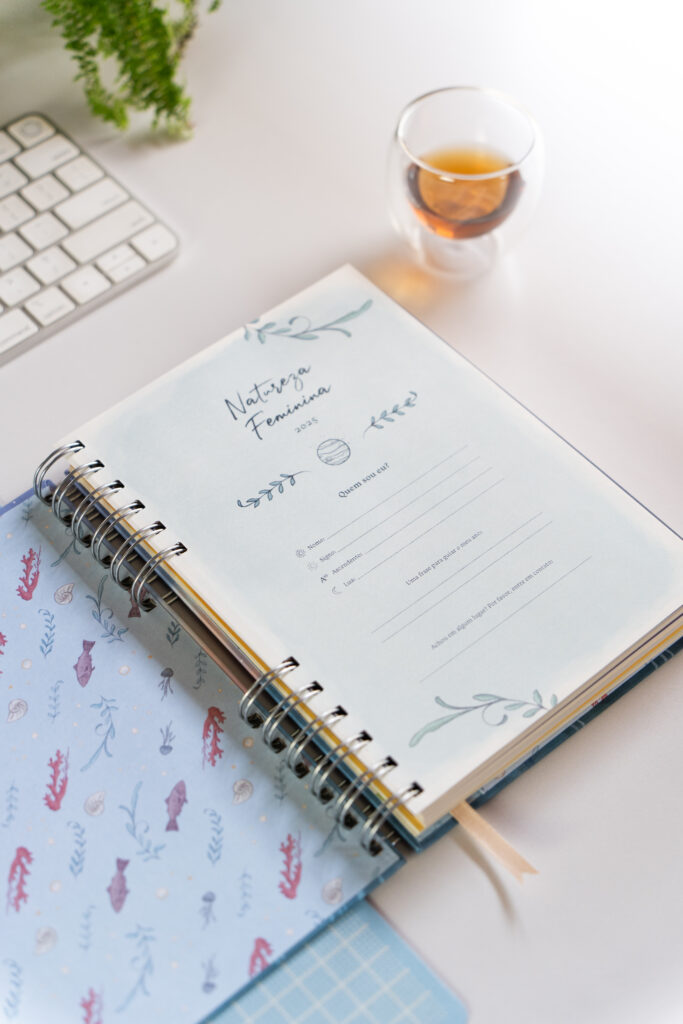 Natureza
Feminina
2025
Quem sou eu?
Nome:
Signo:
Ascendente:
Lua:
Uma frase para guiar o meu ano:
Achou em algum lugar? Por favor, entre em contato: